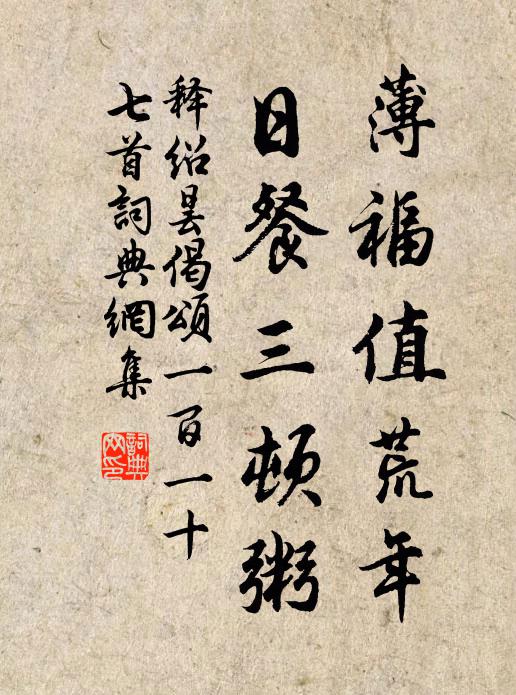 薄福值荒年
日餐三顿粥
释绍昙偈颂一百一十
七首詞典網集
詞典
网印